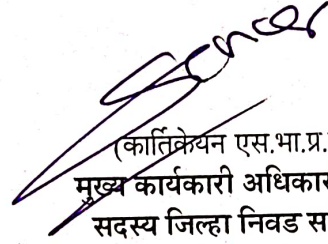 (कार्तिकेयन एस.भा.प्र.
मुख्य कार्यकारी अधिकार
सदस्य जिल्हा निवड स